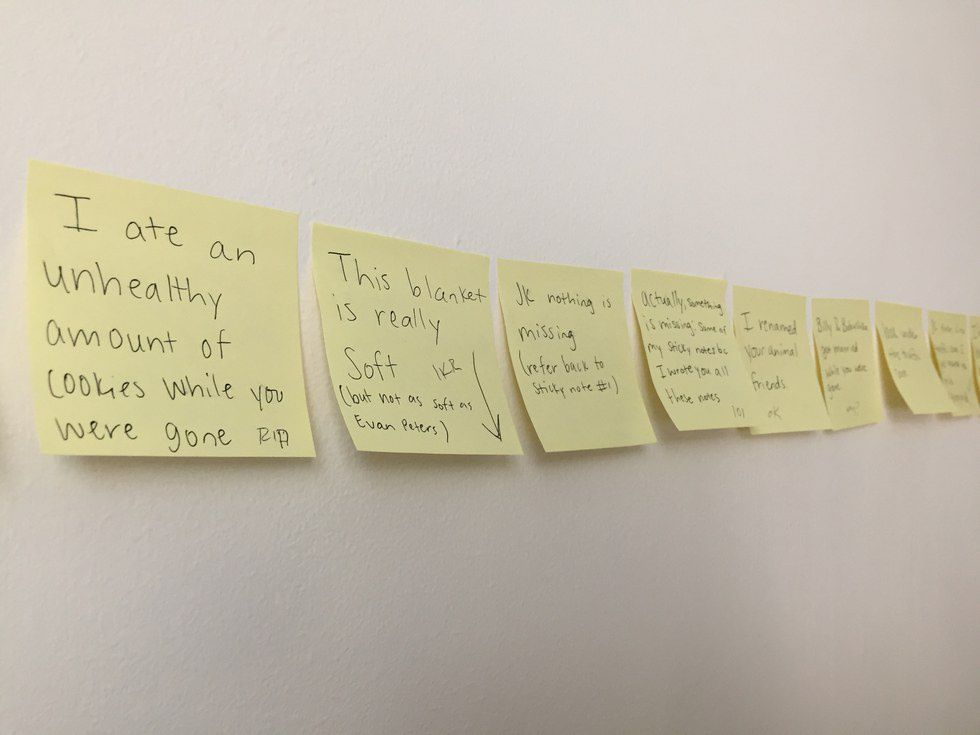 I ate an
unhealthy
amount of
cookies while you
were gone RIP
This blanket
is really
Soft IKR
(but not as soft as
Evan Peters)
JK nothing is
missing
(refer back to
Sticky note #1)
actually, something
is missing. some of
my sticky notes bc
I wrote you all
these notes
lol
I renamed
your animal
friends.
ok
Billy &
got married
while you were
gone